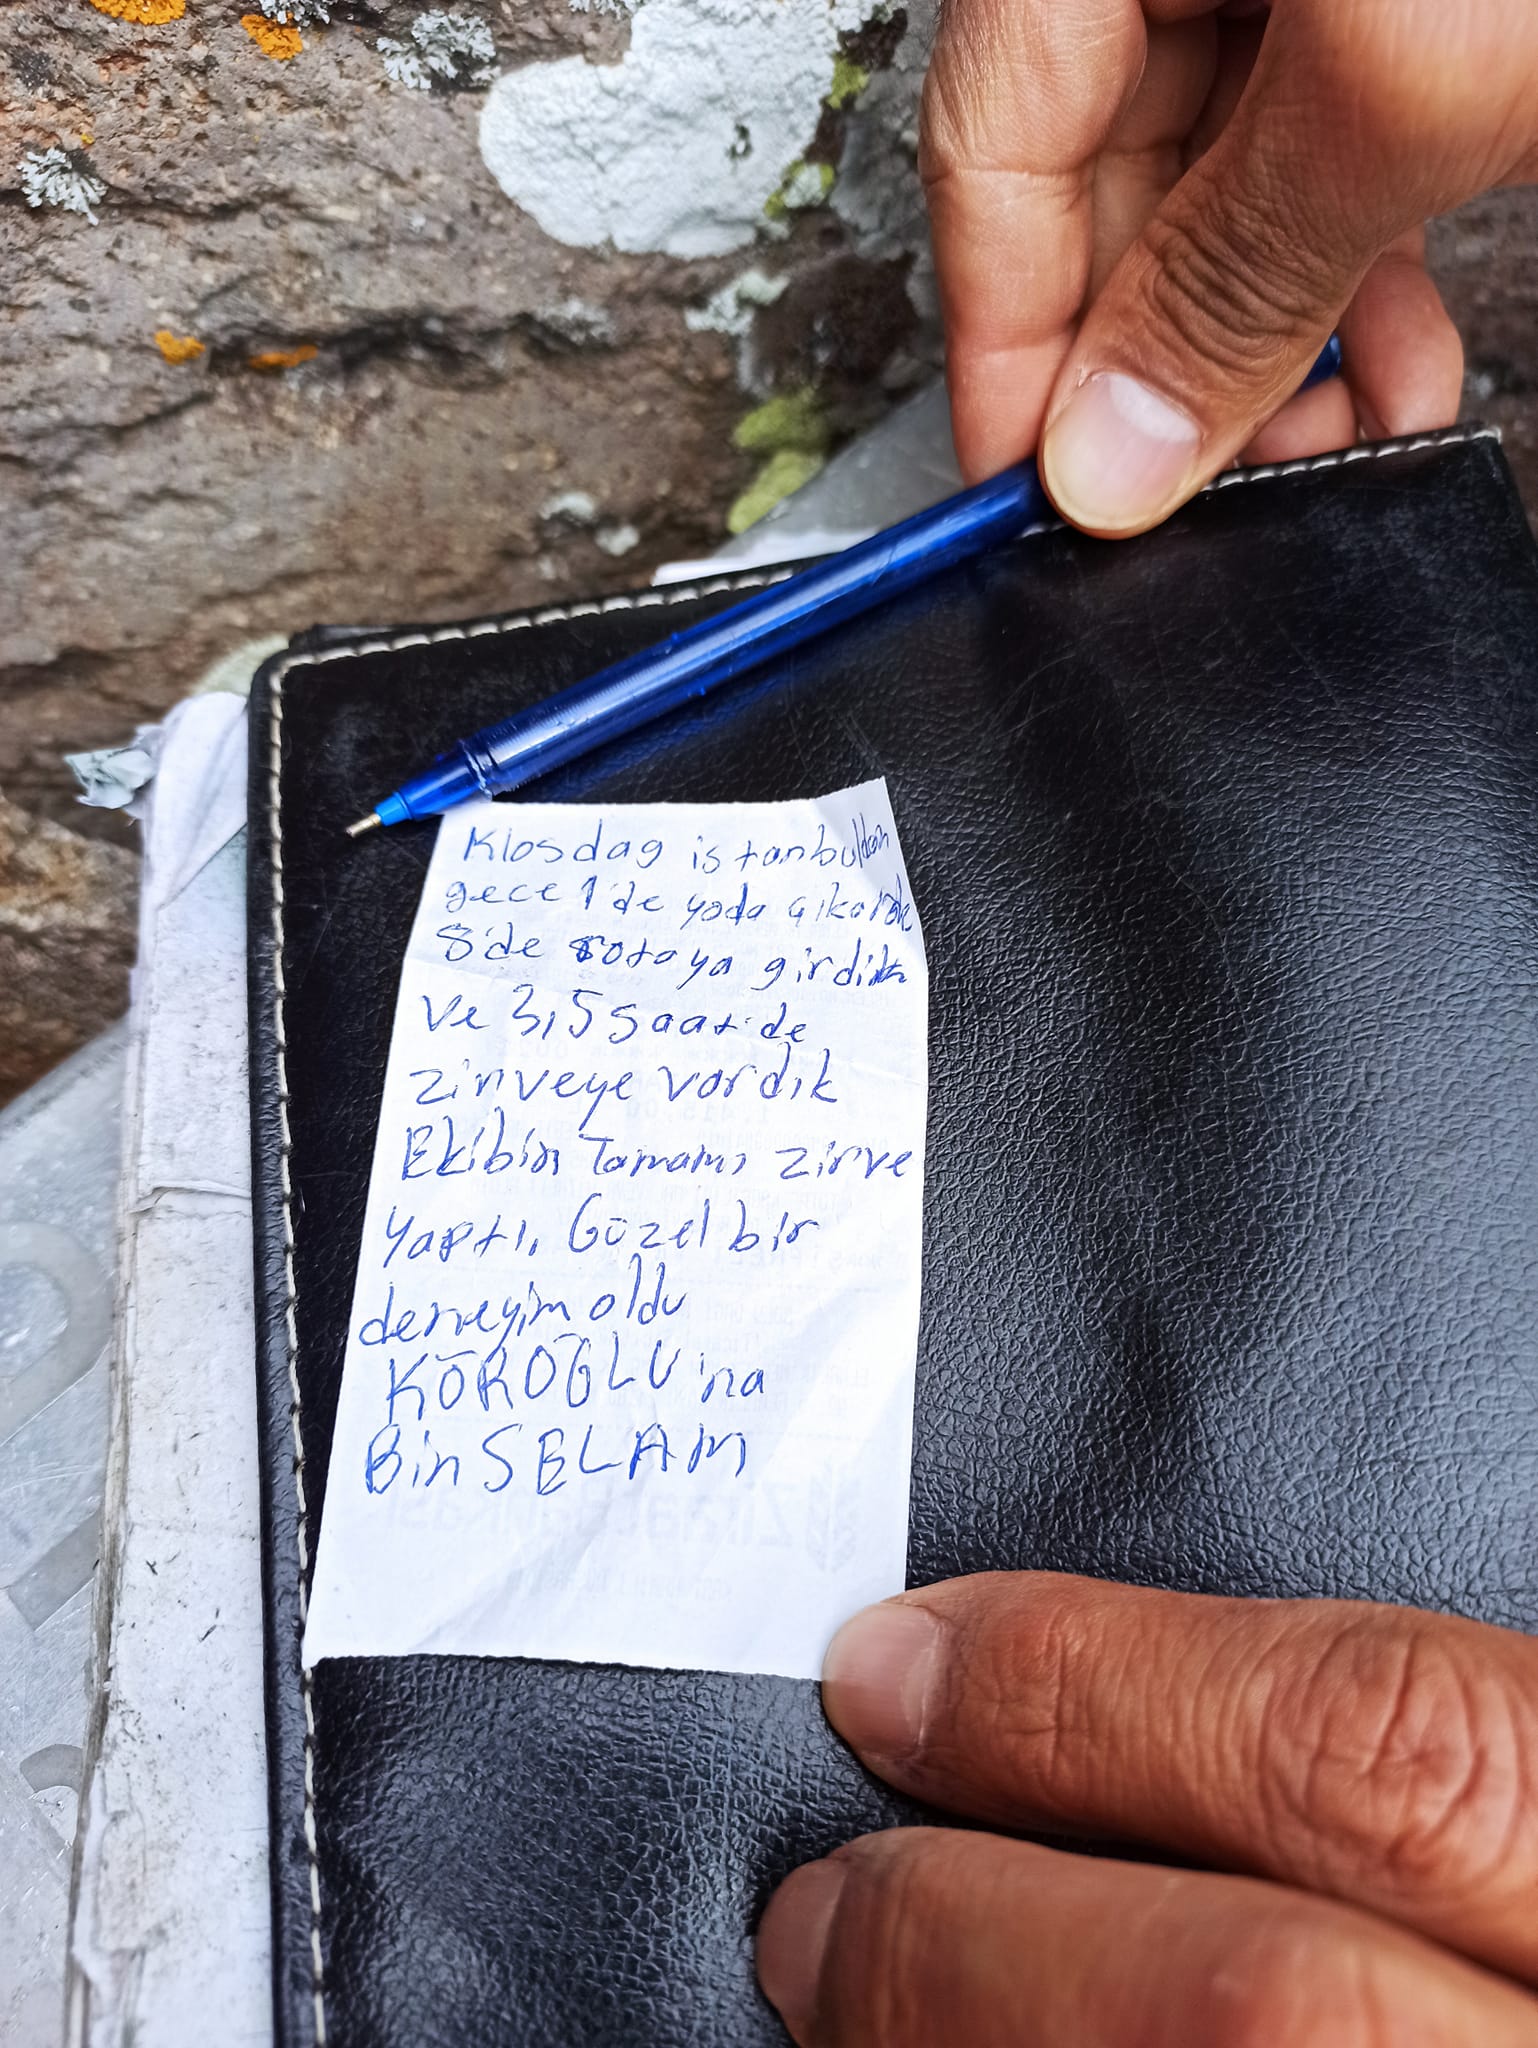 Klosdag istanbuldan
gece 1'de yola çıkarak
8'de rotaya girdik
ve 3,5 saat'de
zirveye vardık
Ekibin Tamamı zirve
yaptı. Güzel bir
deneyim oldu
KÖROĞLU'na
Bin SELAM
Ziraat Bankası